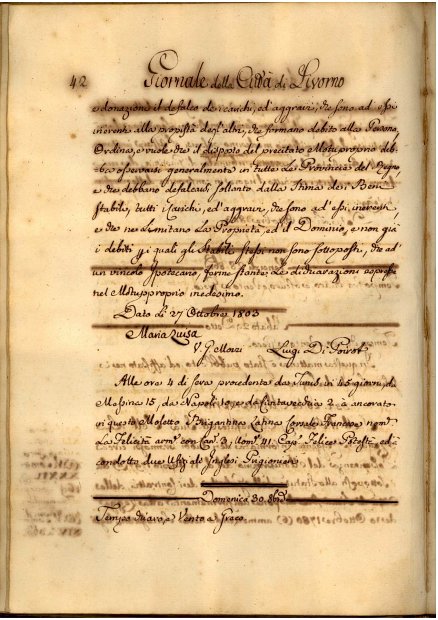 42 Giornale della Città di Livorno
e donazione il defalco de i carichi, ed aggravi, che sono ad essi
inerenti alla propietà degl'altri, che formano debito alla Persona
Ordina, e vuole che il disposto del precitato Motuproprio deb-
ba osservarsi generalmente in tutte Le Provincie del Regno
e che debbano defalcarsi soltanto dalla stima dei Beni
stabili, tutti i Carichi, ed aggravi, che sono ad essi inerenti
e che ne limitano La Proprietà, ed il Dominio, e non già
i debiti p i quali gli stabili stessi non sono sottoposti, che ad
un vincolo Ipotecario, ferme stante Le dichiarazioni
nel Motupproprio medesimo.
Dato li 27 Ottobre 1803
Maria Luisa
V Luigi Di Poirot
Alle ore 4 di sera procedente da Tunis in 45 giorni, da
Messina 15, da Napoli 10, e da Civitavecchia 2, à ancorato
in questo Moletto Brigantina Latina Corsale Francese nom
La Felicità arm con Cann 2, Uom 41. Cap Felice ed à
condotto due Uffiziali Inglesi Prigionieri
Domenica 30. 8bre
Tempo chiaro, e Vento a Greco